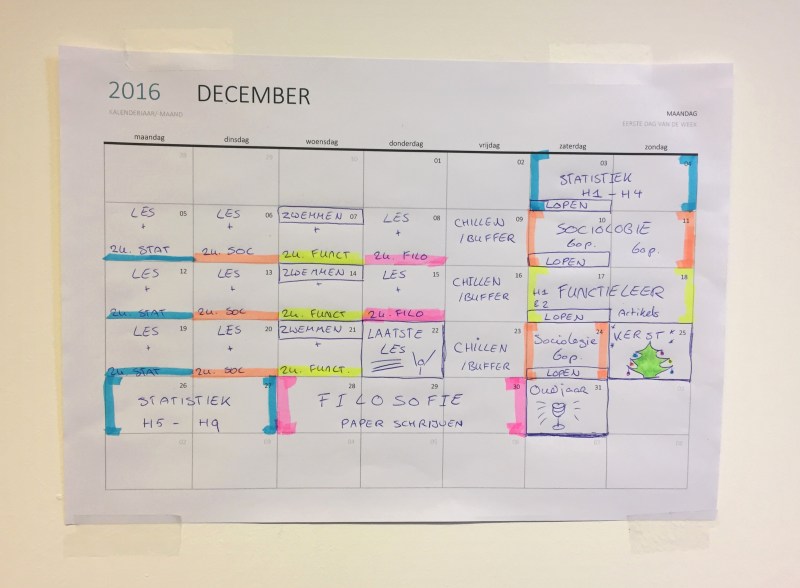 2016 DECEMBER
KALENDERJAAR/ MAAND
MAANDAG
EERSTE DAG VAN DE WEEK
maandag dinsdag woensdag donderdag vrijdag zaterdag zondag
28 29 30 01 02 03 04
STATISTIEK
H1 - H4
LOPEN
LES 05 LES 06 ZWEMMEN 07 LES 08 CHILLEN 09 10 11
+ + + + /BUFFER SOCIOLOGIE
6op. 6op.
2u. STAT 2u. SOC 2u. FUNCT 2u. FILO LOPEN
LES 12 LES 13 ZWEMMEN 14 LES 15 CHILLEN 16 17 18
+ + + + /BUFFER H1 FUNCTIELEER
&2
2u. STAT 2u. SOC 2u. FUNCT 2u. FILO LOPEN Artikels
LES 19 LES 20 ZWEMMEN 21 LAATSTE 22 CHILLEN 23 24 KERST 25
+ + + LES /BUFFER Sociologie
6op.
2u. STAT 2u. SOC 2u. FUNCT LOPEN
26 27 28 29 30 Oudjaar 31
STATISTIEK FILOSOFIE
H5 - H9 PAPER SCHRIJVEN